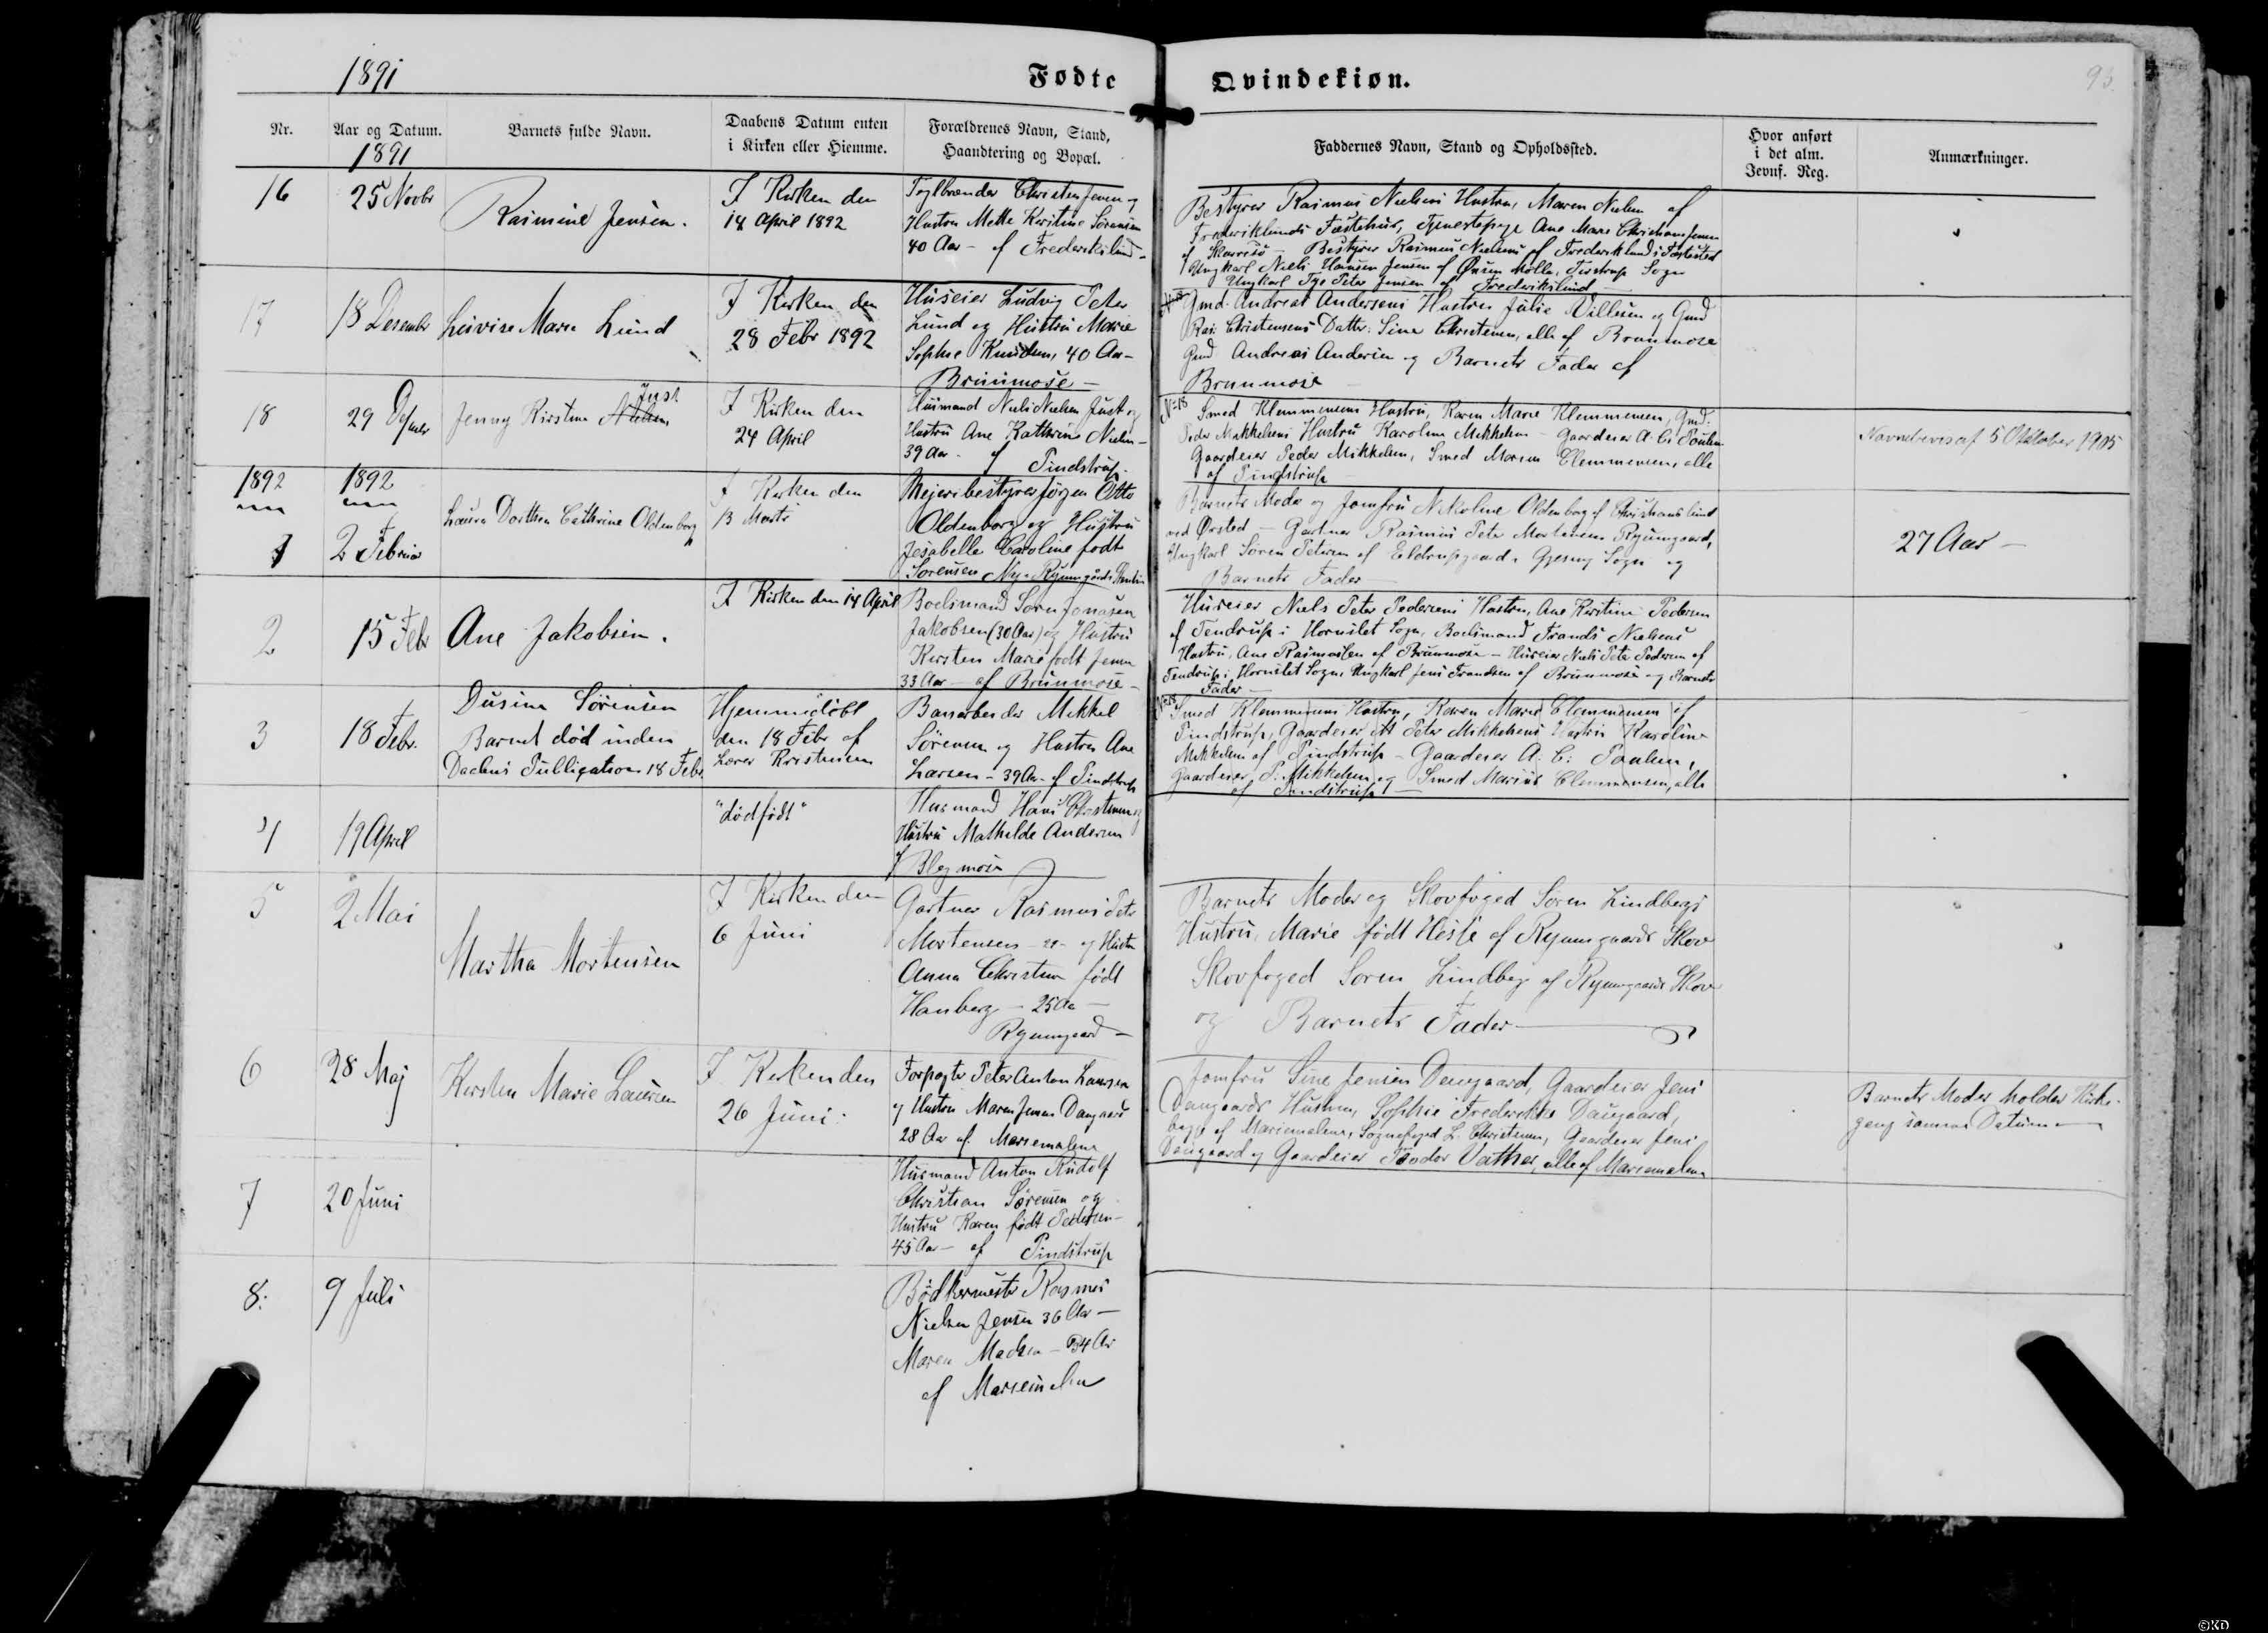 1891
Fødte
Qvindekiøn.
93.
Nr.
Aar og Datum.
1891
Barnets fulde Navn.
Daabens Datum enten
i Kirken eller Hiemme.
Forældrenes Navn, Stand,
Haandtering og Bopæl.
Faddernes Navn, Stand og Opholdssted.
Hvor anført
i det alm.
Jevnf. Reg.
Anmærkninger.
16
25 Novbr
Rasmine Jensen.
I Kirken den
18 April 1892
Teglbrænder Christen Jensen og
Hustru Mette Kirstine Sørensen
40 Aar - af Frederikslund -
Bestyrer Rasmus Nielsens Hustru, Maren Nielsen af
Frederikslunds Fæstehus, Tjenestepige Ane Marie Christiansen
af Skaresø - Bestyrer Rasmus Nielsen af Frederikslunds
Ungkarl Niels Hansen Jensen af Mølle, Tirstrup Sogn
Ungkarl Peter Jensen af Frederikslund
17
18 Desember
Lovise Marie Lund
I Kirken den
28 Febr 1892
Huseier Ludvig Peter
Lund og Hustru Marie
Sophie Knudsen, 40 Aar -
Brunmose -
Gmd. Andreas Andersens Hustru Julie Villsen og Gmd
Ras: Christensens Datter: Sine Christensen, alle af Brunmose
Gmd Andreas Andersen og Barnets Fader af
Brunmose
18
29 Desmbr
Jenny Kirstine Nielsen Just
I Kirken den
24 April
Husmand Niels Nielsen Just og
Hustru Ane Kathrine Nielsen -
39 Aar - af Pindstrup.
No 18 Smed Klemmensens Hustru, Karen Marie Klemmensen, Gmd.
Peder Mikkelsens Hustru Karoline Mikkelsen - Gaardeier A. C. Poulsen
Gaardeier Peder Mikkelsen, Smed Marius Clemmensen, alle
af Pindstrup
Navnebevis af 5 Oktober 1905
1892
1892
1
2 Februar
Laura Dorthea Cathrine Oldenborg
I Kirken den
13 Marts
Mejeribestyrer Jørgen Otto
Oldenborg og Hustru
Jesabelle Caroline født
Sørensen Nye Ryumgård
Barnets Moder og Jomfru Nikoline Oldenborg af Christianslund
ved Ørsted - Gartner Rasmus Peter Mortensen Ryumgaard,
Ungkarl Søren Petersen af Eldrupgaard, Gjesing Sogn og
Barnets Fader
27 Aar -
2
15 Febr
Ane Jakobsen.
I Kirken den 18 April
Boelsmand Søren Jonasen
Jakobsen (30 Aar) og Hustru
Kirsten Marie født Jensen
33 Aar - af Brunmose -
Huseier Niels Peter Pedersens Hustru, Ane Kirstine Pedersen
af Tendrup i Hornslet Sogn, Boelsmand Frands Nielsens
Hustru, Ane Rasmussen af Brunmose - Huseier Niels Peter Pedersen af
Tendrup i Hornslet Sogn, Ungkarl Jens Frandsen af Brunmose og Barnets
Fader -
3
18 Febr.
Dusine Sørensen
Barnet død inden
Daabens Publication 18 Febr.
Hjemmedøbt
den 18 Febr af
Lærer Kristensen
Banearbeider Mikkel
Sørensen og Hustru Ane
Larsen - 39 Aar - af Pindstrup
Smed Klemmensens Hustru, Karen Marie Clemmensen af
Pindstrup, Gaardeier Peter Mikkelsens Hustru Karoline
Mikkelsen af Pindstrup - Gaardeier A. C. Poulsen,
Gaardeier P. Mikkelsen og Smed Marius Clemmensen, alle
af Pindstrup
4
19 April
"dødfødt"
Husmand Hans Christensen og
Hustru Mathilde Andersen
af Blegmose
5
2 Mai
Martha Mortensen
I Kirken den
6 Juni
Gartner Rasmus Peter
Mortensen - 29 - og Hustru
Anna Christine født
Hanberg - 25 Aar -
Ryumgaard -
Barnets Moder og Skovfoged Søren Lindbergs
Hustru, Marie født Hesse af Ryumgaards Skov
Skovfoged Søren Lindberg af Ryumgaards Skov
og Barnets Fader -
6
28 Maj
Kirsten Marie Laursen
I Kirken den
26 Juni.
Forpagter Peter Anton Laursen
og Hustru Maren Jensen Daugaard
28 Aar af Mariemalene
Jomfru Sine Jensen Daugaard, Gaardeier Jens
Daugaards Hustru, Sophie Frederikke Daugaard,
begge af Mariemalene, Sognefoged L. Christensen, Gaardeier Jens
Daugaard og Gaardeier Teodor Vather, alle af Mariemalene
Barnets Moder holder Kirke-
gang samme Datum
7
20 Juni
Husmand Anton Rudolf
Christian Sørensen og
Hustru Karen født Pedersen -
45 Aar - af Pindstrup
8.
9 Juli
Bødkermester Rasmus
Nielsen Jensen 36 Aar -
Maren Madsen - 34 Aar
af Mariemalene
©KD